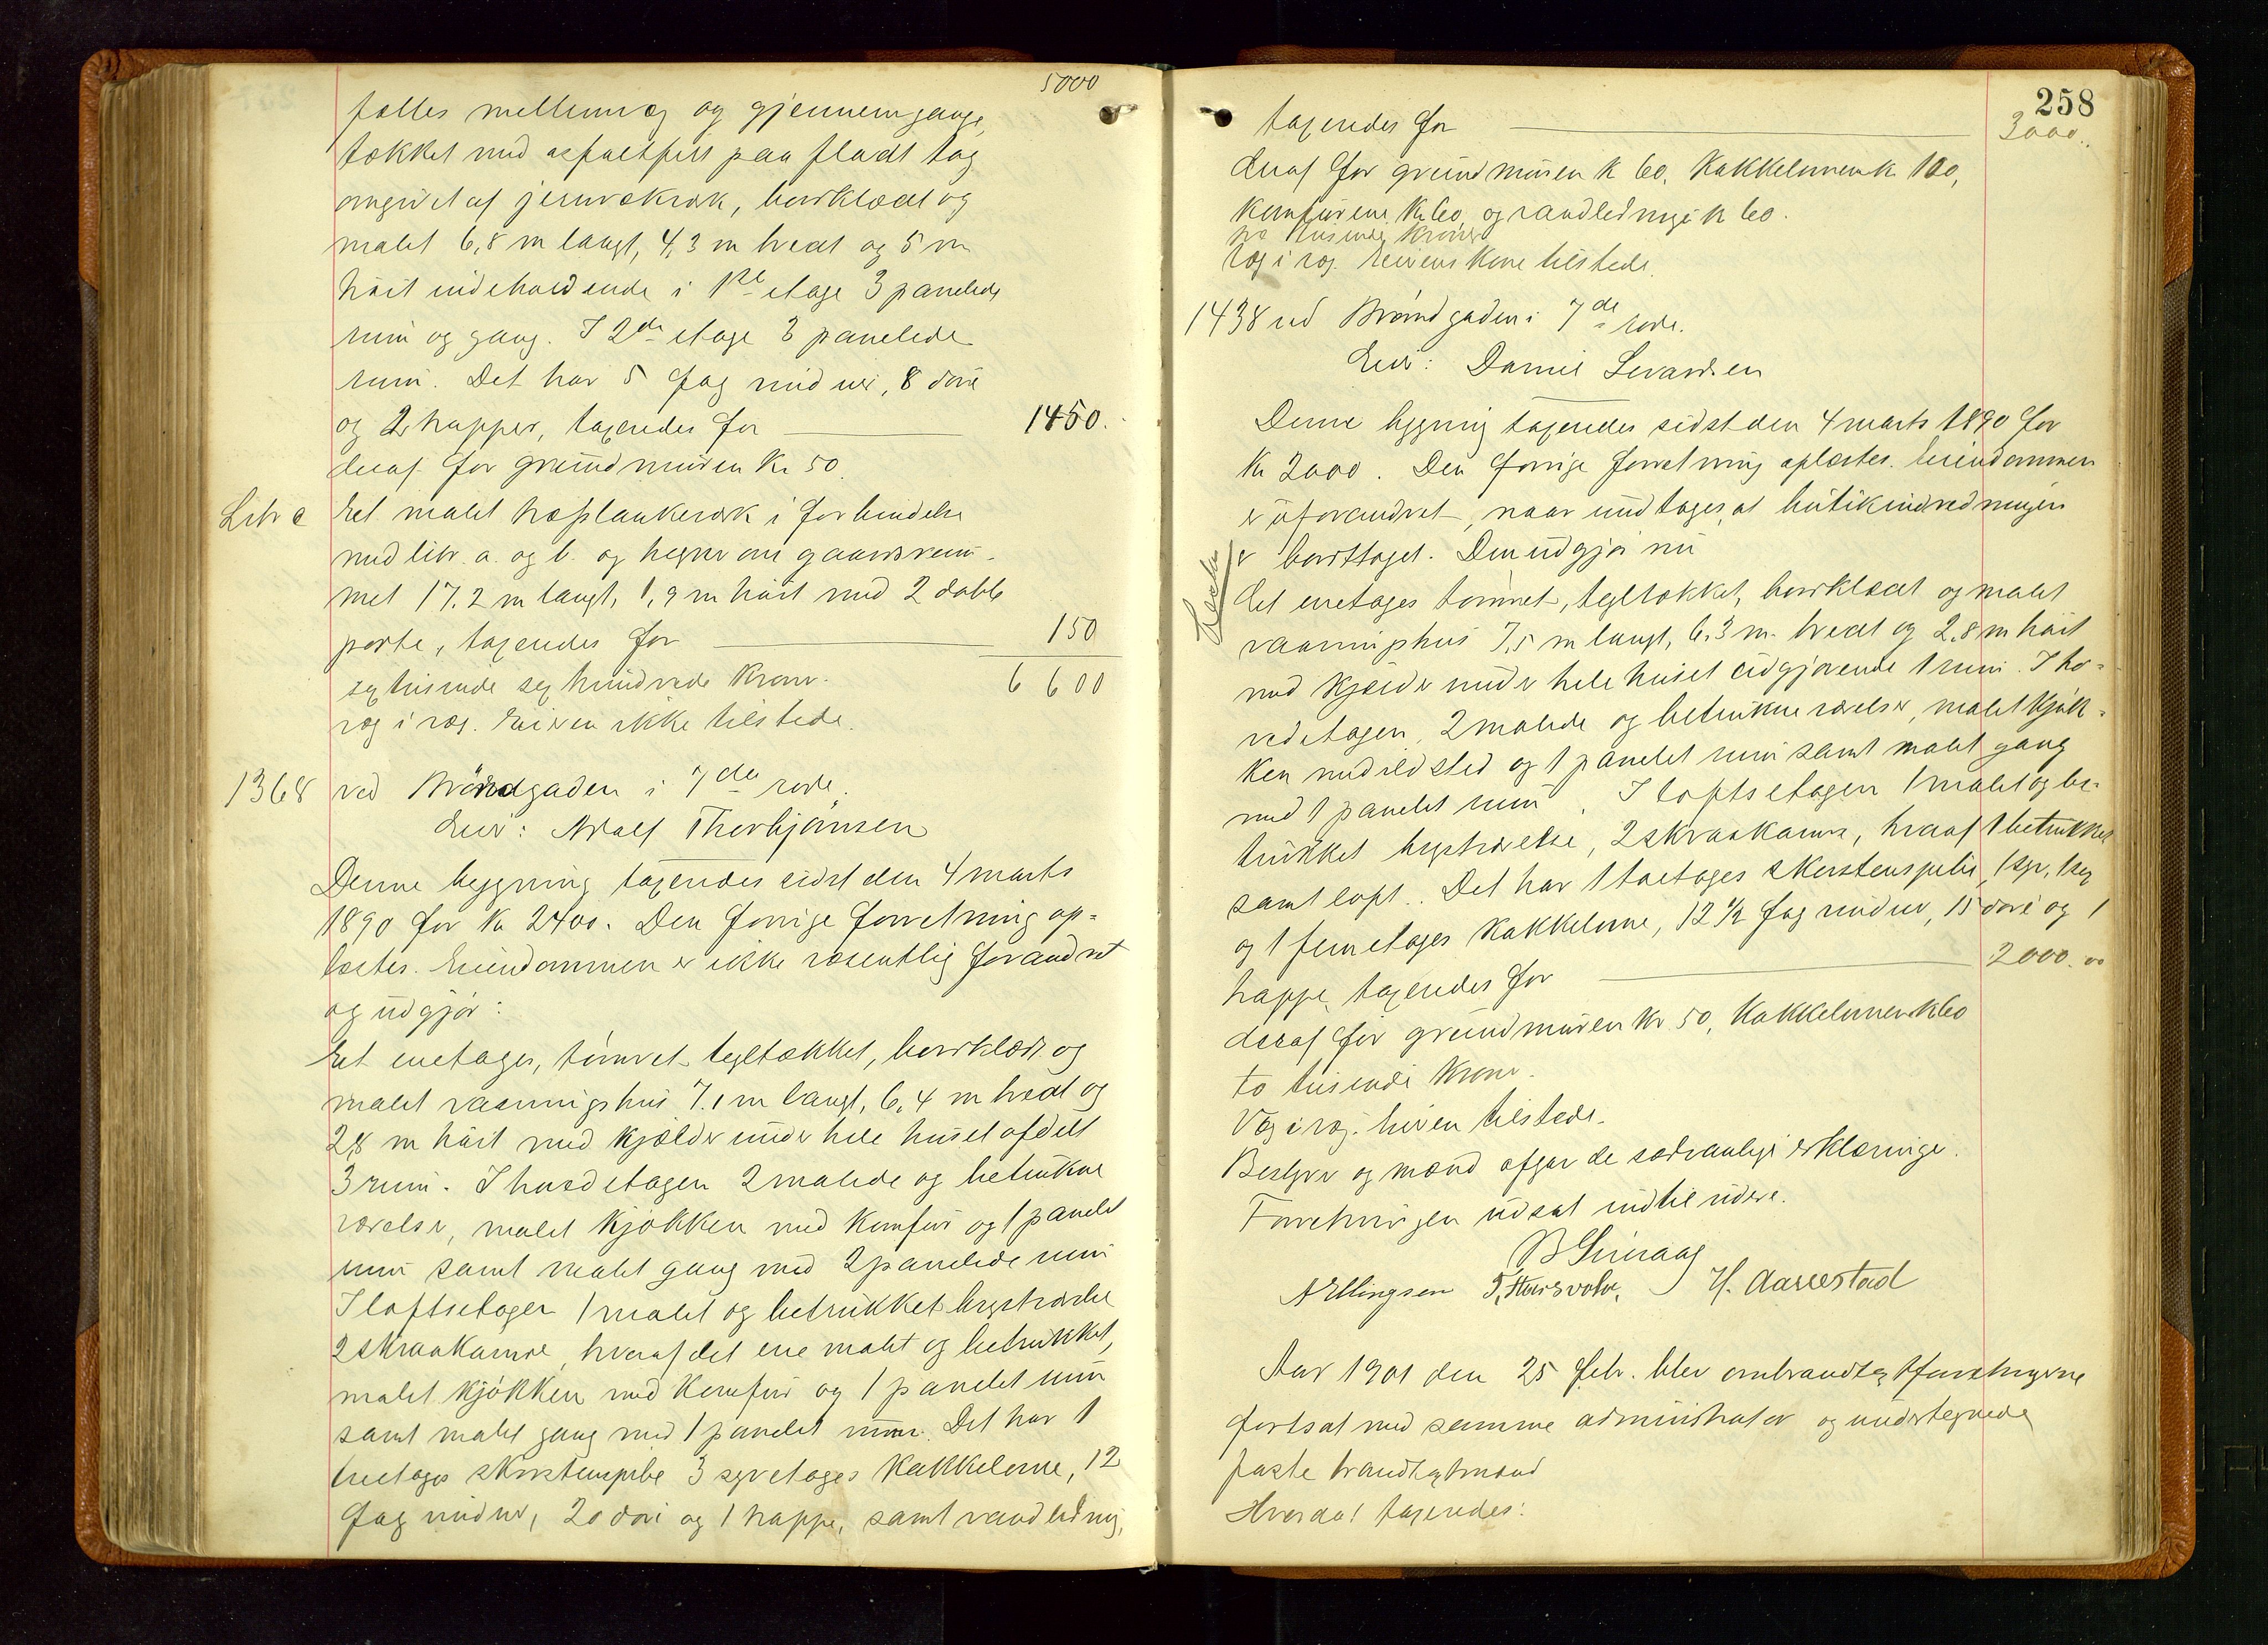 5000
fælles mellemvæg og gjennemgange,
tækket med asfaltfilt paa fladt tag
omgivet af jernrækværk, bordklædt og
malet 6,8 m langt, 4,3 m bredt og 5 m
høit indeholdende i 1ste etage 3 panelede
rum og gang. I 2den etage 3 panelede
rum. Det har 5 fag vinduer, 8 døre
og 2 trapper, taxeredes for 1450.
deraf for grundmuren Kr 50.
Litr c Et malet træplankeværk i forbindelse
med litr. a. og b. og hegner om gaardsrum-
met 17.2 m langt, 1,9 m høit med 2 doble
porte, taxeredes for 150
sextusinde sexhundrede Kroner. 6 600
væg i væg. Eieren ikke tilstede.
1368 ved Brøndgaden i 7de rode.
Eier: Adolf Thorbjørnsen
Denne bygning taxeredes sidst den 4 marts
1890 for Kr 2400. Den forrige forretning op=
læstes. Eiendommen er ikke væsentlig forandret
og udgjør:
Et enetages, tømret tegltækket, bordklædt og
malet vaaningshus 7.1 m langt, 6,4 m bredt og
2,8 m høit med kjælder under hele huset afdelt
3 rum. I hovedetagen 2 malede og betrukne
værelser, malet kjøkken med komfur og 1 panelet
rum samt malet gang med 2 panelede rum
I loftsetagen 1 malet og betrukket kvistværelse
2 skraakamre, hvoraf det ene malet og betrukket,
malet kjøkken med komfur og 1 panelet rum
samt malet gang med 1 panelet rum. Det har 1
toetages skorstenspibe 3 syvetages kakkelovne, 12
fag vinduer, 20 døre og 1 trappe, samt vandledning,
258
taxeredes for 3000..
deraf for grundmuren Kr 60, Kakkelovnene Kr 100,
Komfurene Kr 60, og vandledningen Kr 60.
tre tusinde Kroner
Væg i væg. Eierens Kone tilstede.
1438 ved Brøndgaden i 7de rode.
Eier: Daniel Sivardsen
Denne bygning taxeredes sidst den 4 marts 1890 for
Kr 2000. Den forrige forretning oplæstes. Eiendommen
er uforandret, naar undtages, at butikindredningen
er borttaget. Den udgjør nu
Et enetages tømret, tegltækket, bordklædt og malet
vaaningshus 7,5 m langt, 6,3 m. bredt og 2,8 m høit
med kjælder under hele huset udgjørende 1 rum. I ho=
vedetagen, 2 malede og betrukne værelser, malet kjøk=
ken med ildsted og 1 panelet rum samt malet gang
med 1 panelet rum. I loftsetagen 1 malet og be-
trukket kvistværelse, 2 skraakamre, hvoraf 1 betrukket
samt loft. Det har 1 toetages skorstenspibe, 1 syv, 1 sex
og 1 femetages kakkelovne, 12 1/2 fag vinduer, 15 døre og 1
trappe, taxeredes for 2000.00
deraf for grundmuren Kr 50, Kakkelovnene Kr 60
to tusinde Kroner.
Væg i væg. Eieren tilstede.
Bestyrer og mænd afgav de sædvanlige erklæringer.
Forretningen udsat indtil videre.
A Ellingsen H. Aarrestad
Aar 1901 den 25 febr. blev ombrandtaxtforretningerne
fortsat med samme administrator og undertegnede
faste brandtaxtmænd
Hvorda! taxeredes: